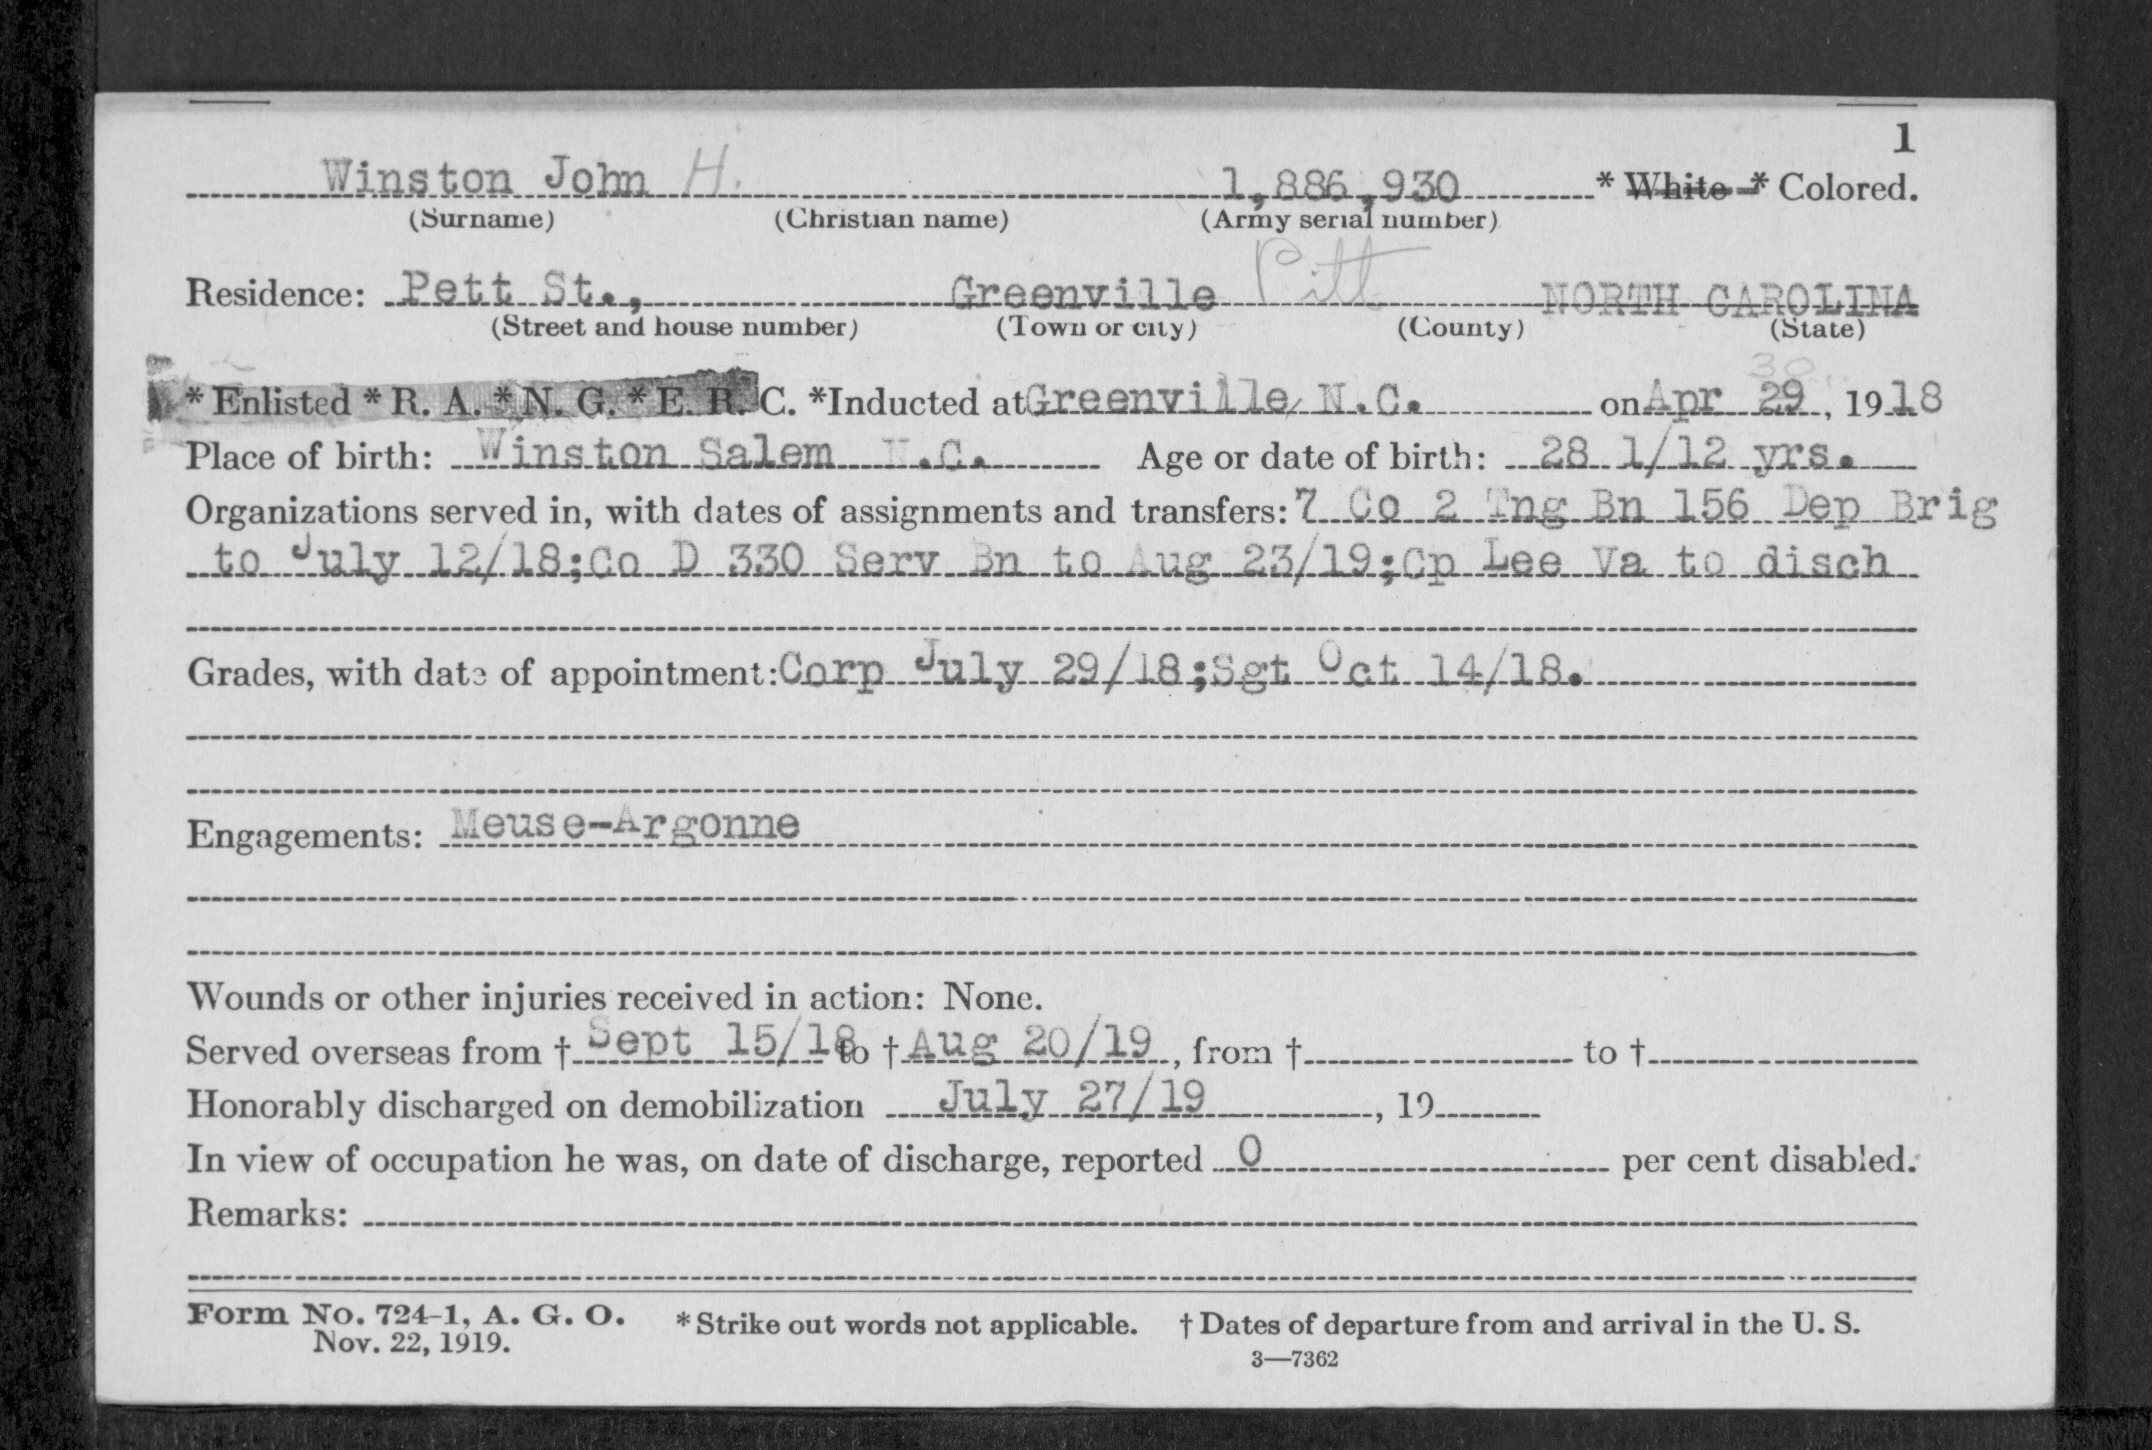 1
Winston John H. 1,886,930 * White * Colored.
(Surname) (Christian name) (Army serial number)
Residence: Pett St., Greenville Pitt NORTH CAROLINA
(Street and house number) (Town or city) (County) (State)
30
* Enlisted * R. A. * N. G. * E. R. C. *Inducted at Greenville, N.C. on Apr 29, 1918
Place of birth: Winston Salem N.C. Age or date of birth: 28 1/12 yrs.
Organizations served in, with dates of assignments and transfers: 7 Co 2 Tng Bn 156 Dep Brig
to July 12/18;Co D 330 Serv Bn to Aug 23/19;Cp Lee Va to disch
Grades, with date of appointment: Corp July 29/18;Sgt Oct 14/18.
Engagements: Meuse-Argonne
Wounds or other injuries received in action: None.
Served overseas from † Sept 15/18 to † Aug 20/19, from † to †
Honorably discharged on demobilization July 27/19, 19
In view of occupation he was, on date of discharge, reported 0 per cent disabled.
Remarks:
Form No. 724-1, A. G. O. *Strike out words not applicable. † Dates of departure from and arrival in the U. S.
Nov. 22, 1919.
3—7362